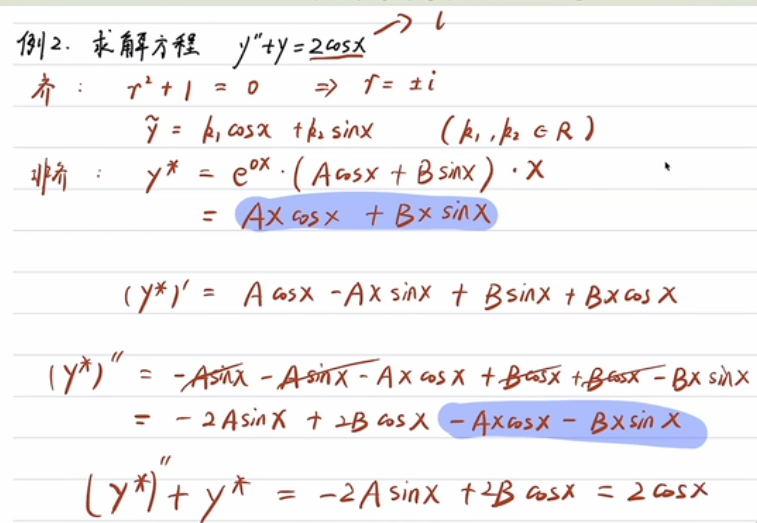 例2. 求解方程 y″+y=2cosx → i
齐: r²+1=0 ⇒ r=±i
ỹ = k₁cosx+k₂sinx (k₁,k₂∈R)
非齐: y* = e^{0x}·(Acosx+Bsinx)·x
= Axcosx + Bxsinx
(y*)′ = Acosx-Axsinx+Bsinx+Bxcosx
(y*)″ = -Asinx-Asinx-Axcosx+Bcosx+Bcosx-Bxsinx
= -2Asinx+2Bcosx-Axcosx-Bxsinx
(y*)″+y* = -2Asinx+2Bcosx = 2cosx